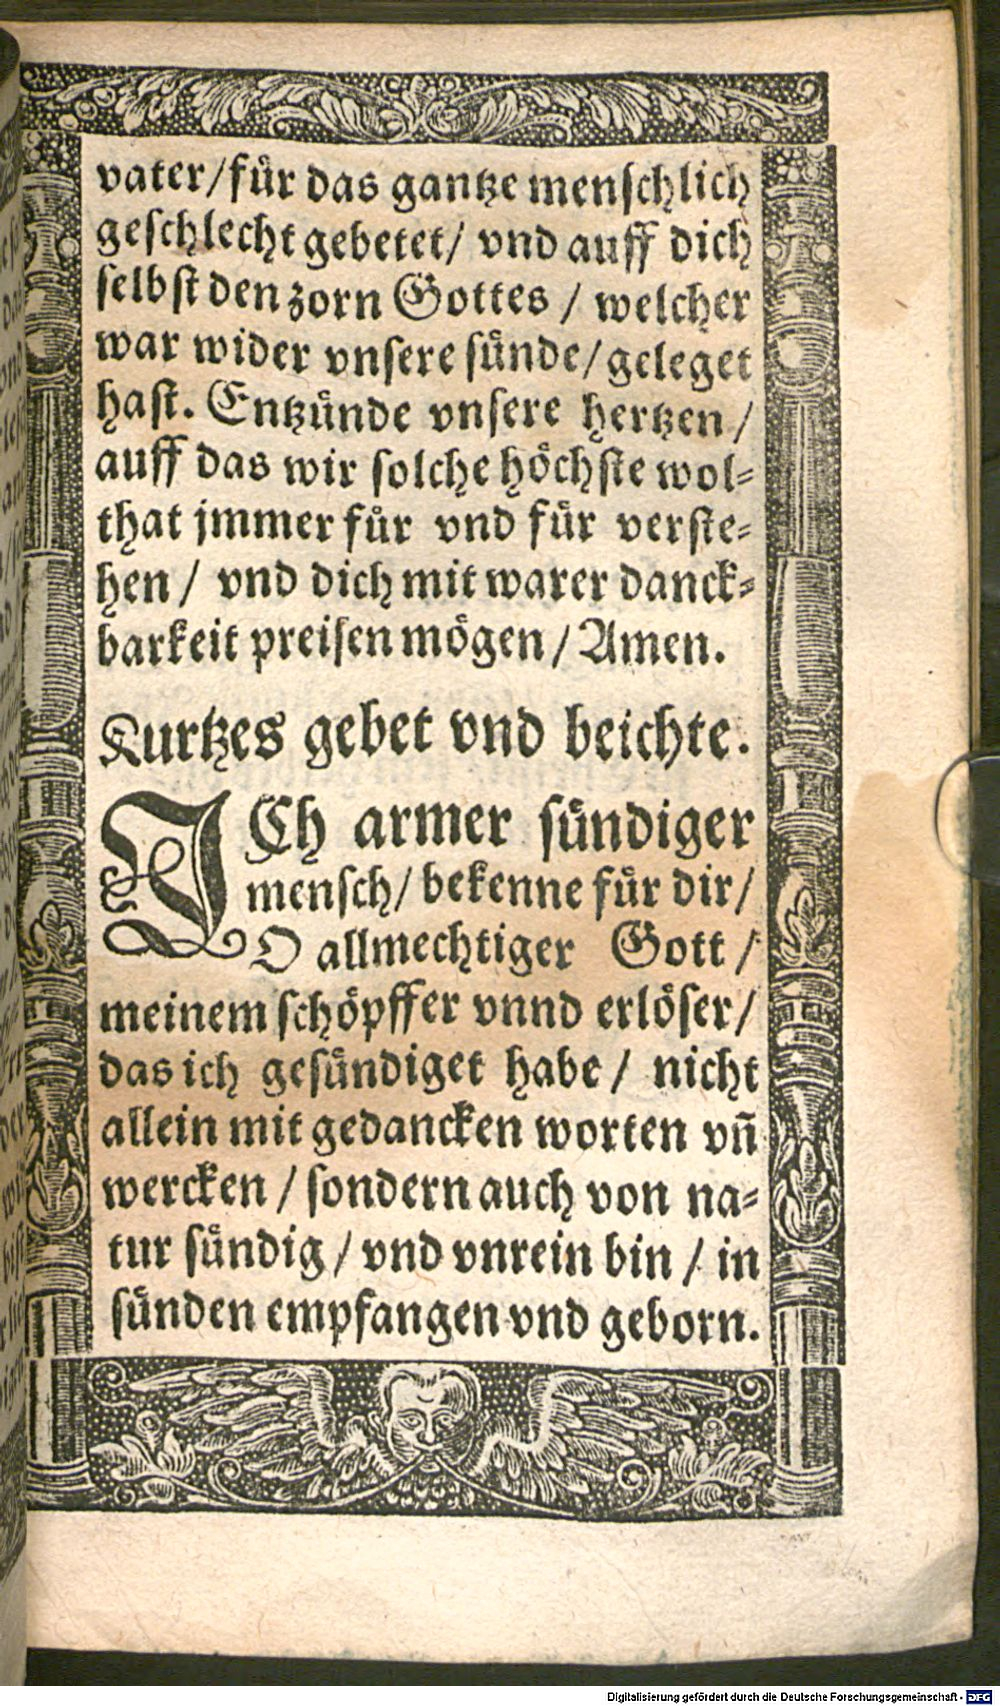 vater/für das gantze menschlich
geschlecht gebetet/ vnd auff dich
selbst den zorn Gottes / welcher
war wider vnsere sünde/geleget
hast. Entzünde vnsere hertzen/
auff das wir solche höchste wol-
that jmmer für vnd für verste-
hen/ vnd dich mit warer danck-
barkeit preisen mögen/Amen.
Kurtzes gebet vnd beichte.
ICh armer sündiger
mensch/ bekenne für dir/
O allmechtiger Gott/
meinem schöpffer vnnd erlöser/
das ich gesündiget habe/ nicht
allein mit gedancken worten vñ
wercken/sondern auch von na-
tur sündig/vnd vnrein bin/ in
sünden empfangen vnd geborn.
Digitalisierung gefördert durch die Deutsche Forschungsgemeinschaft - DFG